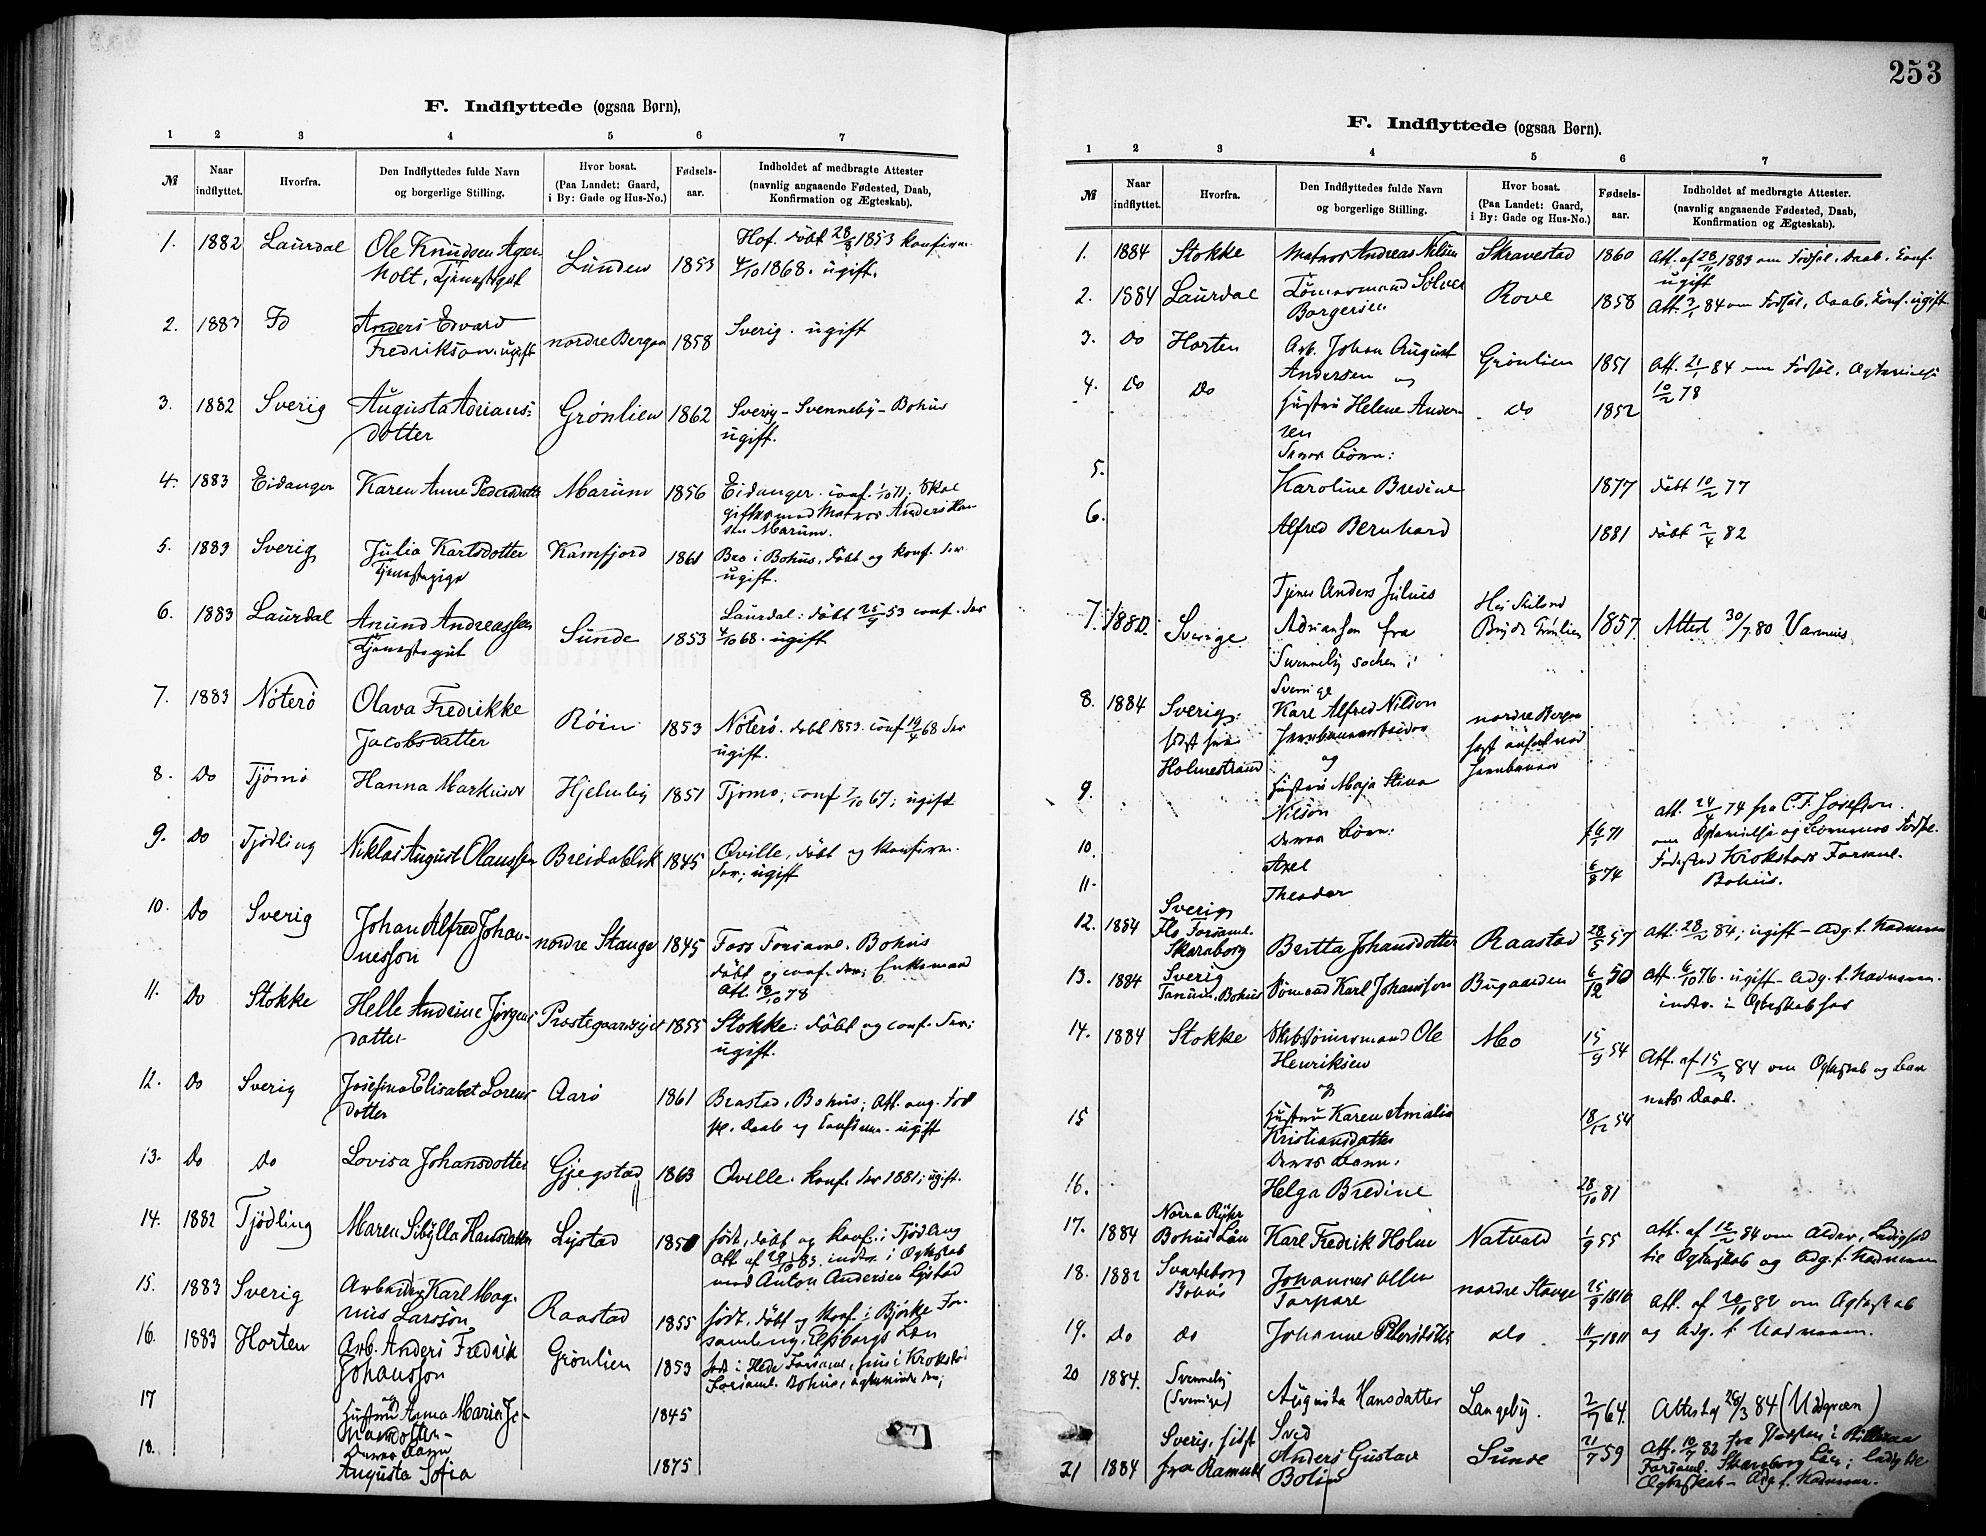 253
F. Indflyttede (ogsaa Børn),
1 2 3 4 5 6 7
№ Naar indflyttet. Hvorfra. Den Indflyttedes fulde Navn og borgerlige Stilling. Hvor bosat. (Paa Landet: Gaard, i By: Gade og Hus-No.) Fødsels-aar. Indholdet af medbragte Attester (navnlig angaaende Fødested, Daab, Konfirmation og Ægteskab).
1. 1882 Laurdal Ole Knudsen Ager-
holt, Tjenestegut Lunden 1853 Hof. døbt 28/8 1853 konfirm.
4/10 1868. ugift.
2. 1883 Do Anders Edvard
Fredrikson. ugift nordre Bergan 1858 Sverig. ugift
3. 1882 Sverig Augusta Adrians-
dotter Grønlien 1862 Sverig - Svenneby - Bohus
ugift.
4. 1883 Eidanger Karen Anne Pedersdatter Marum 1856 Eidanger. conf. 1/10 71; skal
giftes med Matros Anders Han-
sen Marum.
5. 1883 Sverig Julia Karlsdotter
Tjenestepige Kamfjord 1861 Bro i Bohus, døbt og konf. der.
ugift.
6. 1883 Laurdal Anund Andreassen
Tjenestegut Sunde 1853 Laurdal: døbt 25/9 53 conf. der
4/10 68. ugift
7. 1883 Nøterø Olava Fredrikke
Jacobsdatter Røin 1853 Nøterø. døbt 1853. conf 19/4 68 der
ugift.
8. Do Tjømø Hanna Markusen Hjelmby 1851 Tjømø; conf 7/10 67; ugift
9. Do Tjødling Niklas August Olaussen Breidablik 1845 Qville, døbt og konfirm.
der; ugift
10. Do Sverig Johan Alfred Johan-
nesson nordre Stange 1845 Foss Forsaml. Bohus
døbt og conf. der; Enkemand
Att. 18/10 78
11. Do Stokke Helle Andrine Jørgens-
datter Prestegaards 1855 Stokke: døbt og conf. der;
ugift.
12. Do Sverig Josefina Elisabet Lorens-
dotter Aarø 1861 Brastad, Bohus; Att. ang. Fød
sel. Daab og Confirm. ugift
13. Do Do Lovisa Johansdotter Gjegstad 1863 Qville. konf. der 1881; ugift.
14. 1882 Tjødling Maren Sibylla Hansdatter Lystad 1850 født, døbt og konf. i Tjødling
Att. af 29/10 83. indtr. i Ægteskab
med Anton Andersen Lystad
15. 1883 Sverig Arbeider Karl Mag-
nus Larsson Raastad 1855 født, døbt og konf. i Bjørke For-
samling, Elfsborgs Län
16. 1883 Horten Arb. Anders Fredrik
Johansson Grønlien 1853 født i Hede Forsaml. hun i Krokstad
Forsaml. Bohus,
17 og
Hustru Anna Maria Jo-
hansdotter 1845
18. Deres Barn
Augusta Sofia 1875
F. Indflyttede (ogsaa Børn).
1 2 3 4 5 6 7
№ Naar indflyttet. Hvorfra. Den Indflyttedes fulde Navn og borgerlige Stilling. Hvor bosat. (Paa Landet: Gaard, i By: Gade og Hus-No.) Fødsels-aar. Indholdet af medbragte Attester. (navnlig angaaende Fødested, Daab, Konfirmation og Ægteskab).
1. 1884 Stokke Matros Andreas Nilsen Skravestad 1860 Att. af 28/11 1883 om Fødsel, Daab, Conf.
ugift
2. 1884 Laurdal Tømmermand Sølver
Borgersen Rove 1858 Att. 3/1 84 om Fødsel, Daab, Conf. ugift
3. Do Horten Arb. Johan August
Andersen og Grønlien 1851 Att. 21/1 84 om Fødsel, Ægtevielse
10/2 78
4. Do Do Hustru Helene Ander-
sen Do 1852
Deres Børn:
5. Karoline Bredine 1877 døbt 10/2 77
6. Alfred Bernhard 1881 døbt 2/4 82
7. 1880. Sverige Tjener Anders Julius
Adrianson fra
Svenneby sochen i
Sverige Grønlien 1857 Attest 30/7 80
8. 1884 Sverig;
sidst fra
Holmestrand Karl Alfred Nilson
Jernbanearbeider
og nordre Bergan
fast ansat ved
Jernbanen
9. Hustru Maja Stina
Nilson
Deres Børn:
Att. 24/4 74 fra C. F. Josefson.
om Ægtevielse og Børnenes Fødsel.
Fødested Krokstads Forsaml.
Bohus.
10. Axel 71
11. Theodor 6/8 74
12. 1884 Sverig
Flo Forsaml.
Skaraborg Britta Johansdotter Raastad 28/5 57 Att. 28/2 84; ugift - Adg. t. Nadveren
13. 1884 Sverig
Tanum, Bohus Sømand Karl Johansson Bugaarden 6/12 50 Att. 6/10 76. ugift - Adg. t. Nadveren.
indtr. i Ægteskab her
14. 1884 Stokke Skibstømmermand Ole
Henriksen
og Mo 15/9 54 Att. af 15/3 84 om Ægteskab og Bar
nets Daab.
15 Hustru Karen Amalia
Kristiansdatter 18/12 54
Deres Barn:
16. Helga Bredine 28/10 81
17. 1884 Norra Ryhr
Bohus Län Karl Fredrik Holm Natvald 1/9 55 Att. af 12/2 84 om Alder, Ledighed
til Ægteskab og Adg. t. Nadveren
18. 1882 Svarteborg
Bohus Johannes Ollen
Torpare nordre Stange 25/9 1810 Att. af 20/10 82 om Ægteskab
og Adg. t. Nadveren.
19. Do Do Johanne Petersdotter do 11/7 1811
20 1884. Svenneby
(Sverige) Augusta Hansdatter Langeby. 2/7 64. Attest af 26/3 84
21 1884 Sverig, sidst
fra Ramnæs Smed
Anders Gustav
Bolin Sunde 21/7 59 Att. 10/7 82 fra
Forsaml. Skaraborg Län; ledig til
Ægteskab - Adg. t. Nadveren.